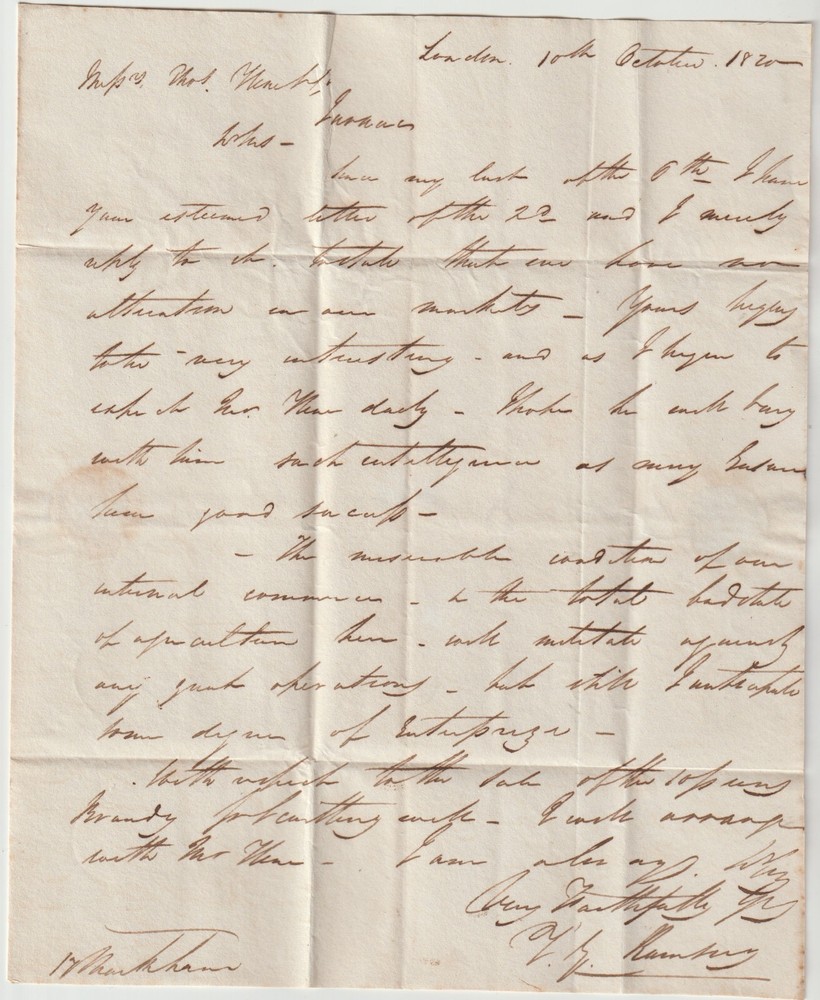 London. 10th October. 1820
Messrs. Thos. Hine & Co.
Jarnac
Sirs –
Since my last of the 6th I have
your esteemed letter of the 2d and I merely
reply to it. to state that we have no
alteration in our markets – Yours begins
to be very interesting – and as I begin to
expect Mr. Hine daily – I hope he will bring
with him such intelligence as may ensure
him good success –
– The miserable condition of our
internal commerce – & the total bad state
of agriculture here – will militate against
any great operations – but still I anticipate
some degree of Enterprize –
With respect to the sale of the 10 puns
Brandy for Cutting with – I will arrange
with Mr Hine – I am always. Sirs
Very Faithfully Yrs
Ramsey
17 Markham